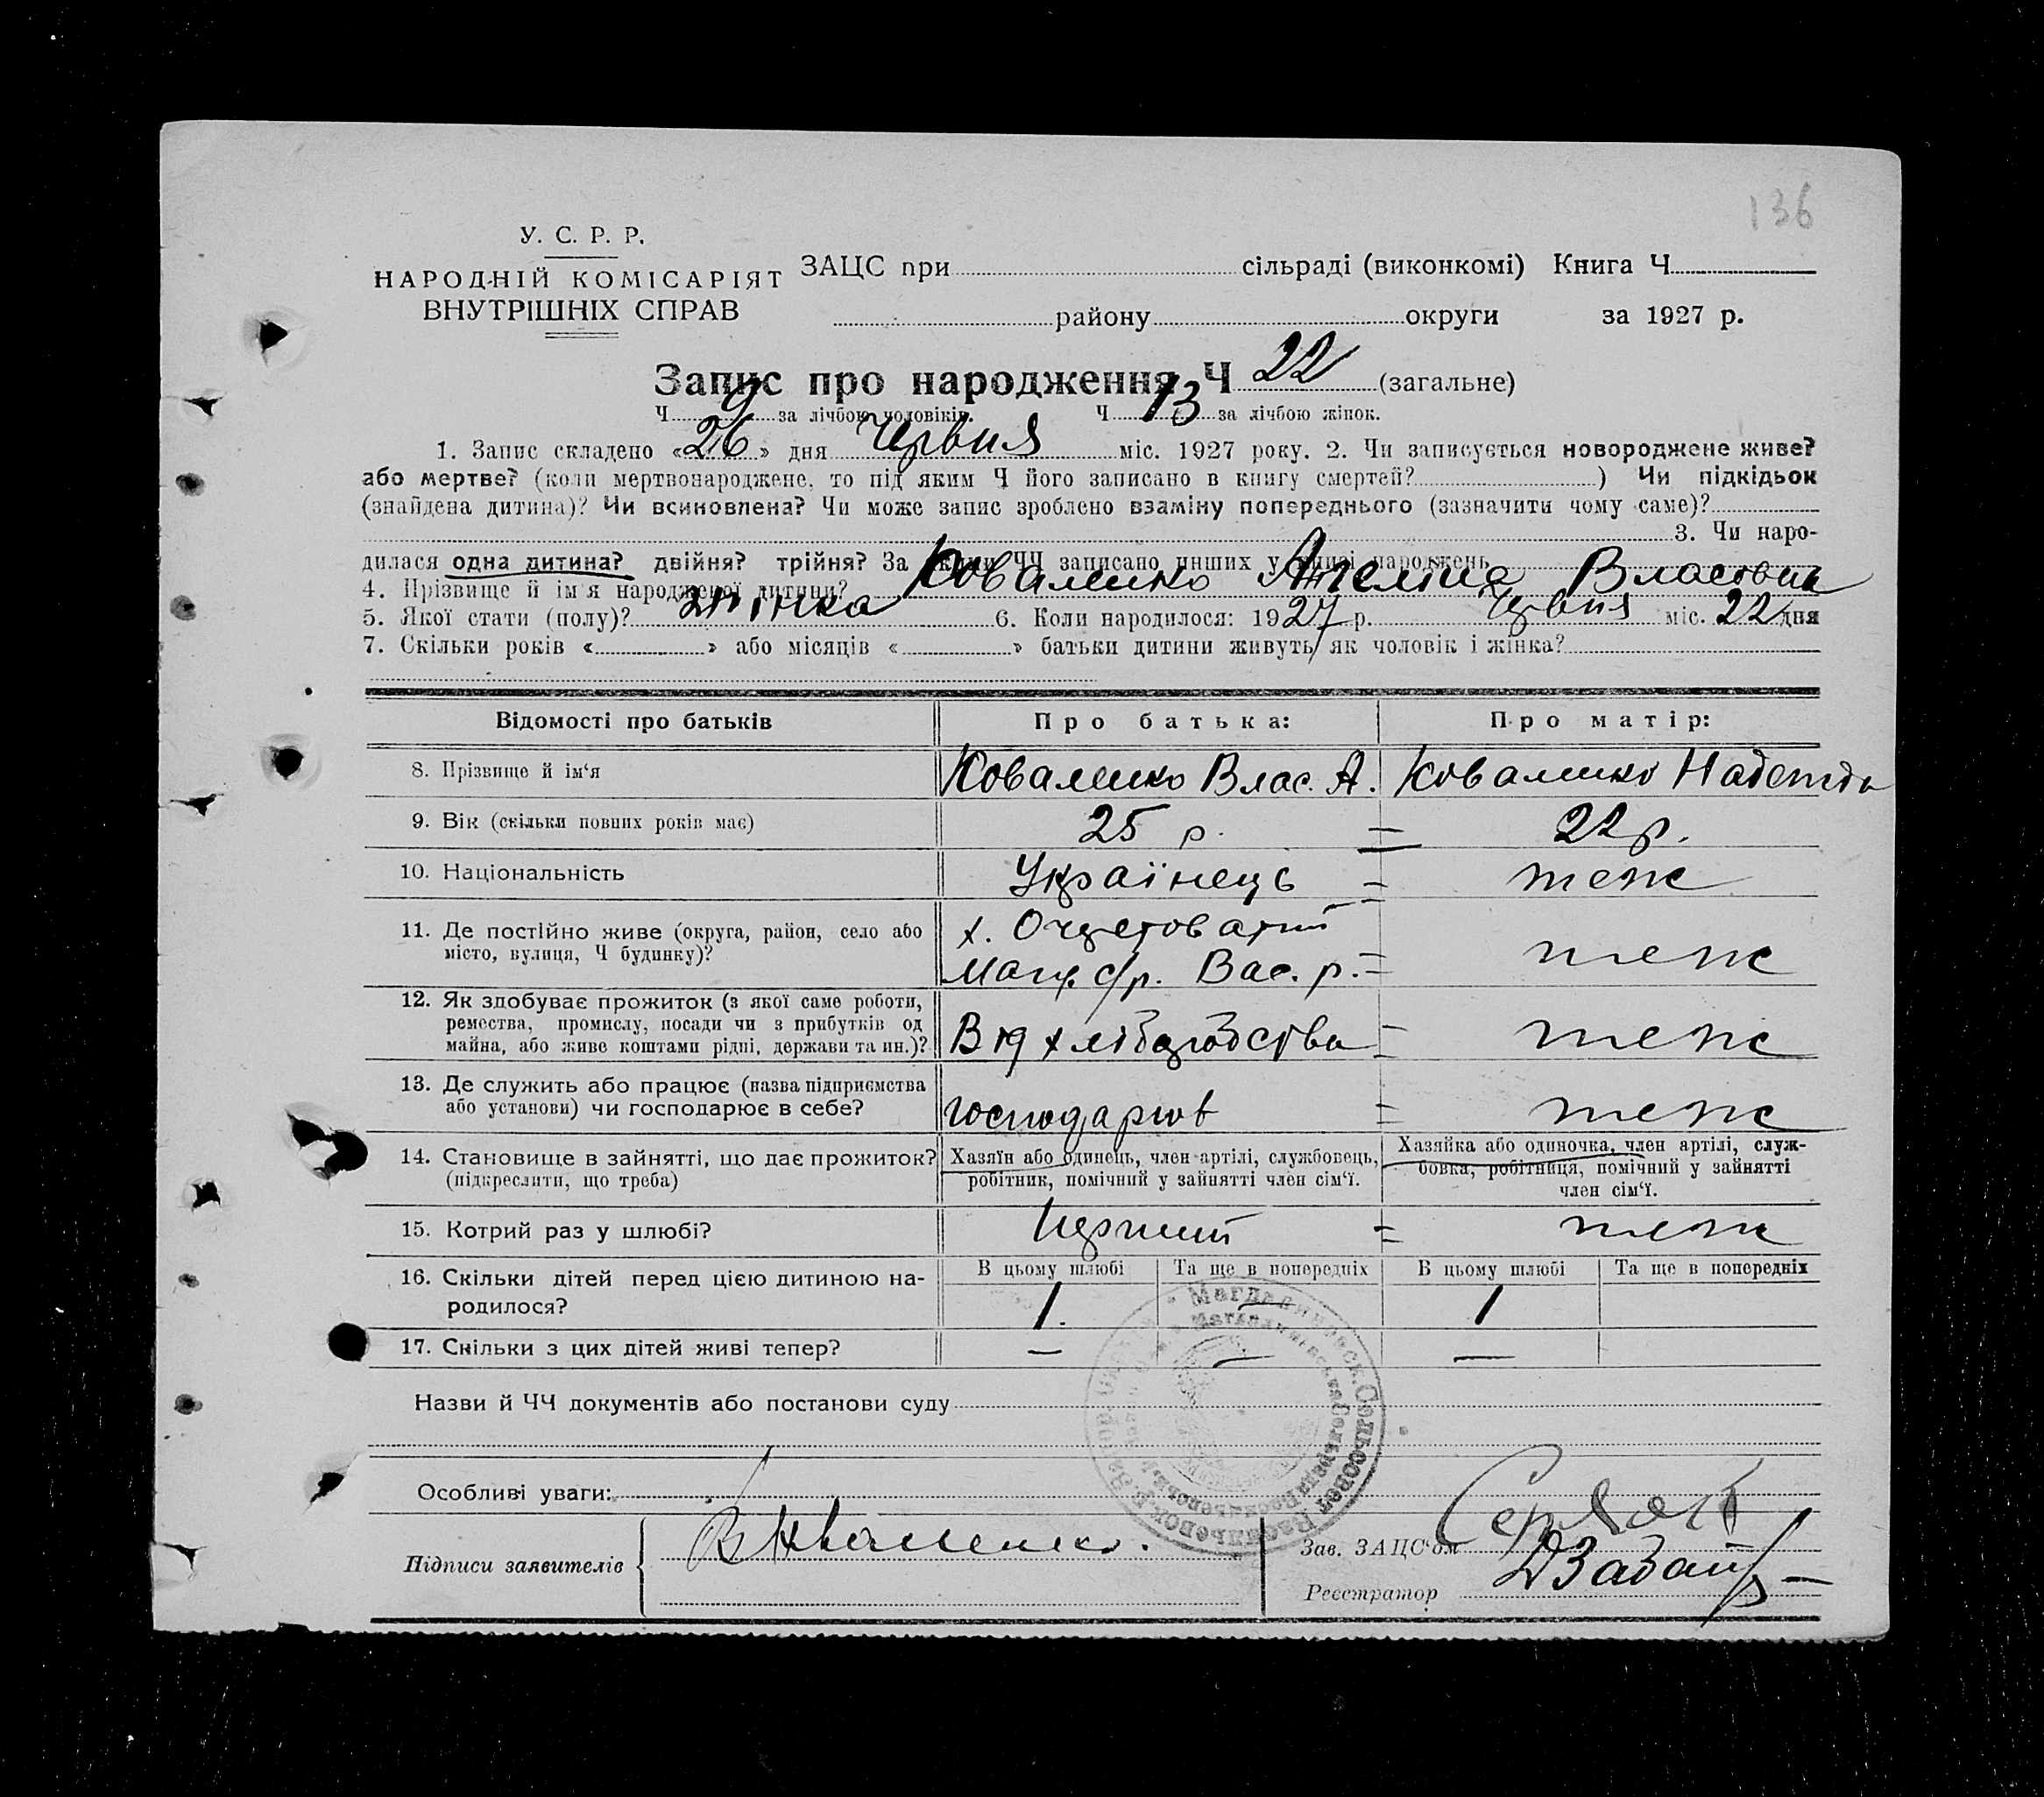 136
У. С. Р. Р.
НАРОДНІЙ КОМІСАРІЯТ
ВНУТРІШНІХ СПРАВ
ЗАЦС при сільраді (виконкомі) Книга Ч.
району округи за 1927 р.
Запис про народження Ч 22 (загальне)
Ч 9 за лічбою чоловіків. Ч 13 за лічбою жінок.
1. Запис складено «26» дня Червня міс. 1927 року. 2. Чи записується новороджене живе?
або мертве? (коли мертвонароджене, то під яким Ч його записано в книгу смертей? ) Чи підкідьок
(знайдена дитина)? Чи всиновлена? Чи може запис зроблено взаміну попереднього (зазначити чому саме)?
3. Чи наро-
дилася одна дитина? двійня? трійня? За якими ЧЧ записано инших у книзі народжень
4. Прізвище й ім'я народженої дитини? Коваленко Ангеліна Власовна
5. Якої стати (полу)? жінка 6. Коли народилося: 1927 р. Червня міс. 22 дня
7. Скільки років « » або місяців « » батьки дитини живуть як чоловік і жінка?
Відомості про батьків Про батька: Про матір:
8. Прізвище й ім'я Коваленко Влас. А. Коваленко Надежда
9. Вік (скільки повних років має) 25 р. = 22 р.
10. Національність Українець = теж
11. Де постійно живе (округа, район, село або
місто, вулиця, Ч будинку)?
х.
с/р. Вас. р. = теж
12. Як здобуває прожиток (з якої саме роботи,
ремества, промислу, посади чи з прибутків од
майна, або живе коштами рідні, держави та ин.)?
Від хлібородства = теж
13. Де служить або працює (назва підприємства
або установи) чи господарює в себе?
господарює = теж
14. Становище в зайнятті, що дає прожиток?
(підкреслити, що треба)
Хазяїн або одинець, член артілі, службовець,
робітник, помічний у зайнятті член сім'ї.
Хазяйка або одиночка, член артілі, служ-
бовка, робітниця, помічний у зайнятті
член сім'ї.
15. Котрий раз у шлюбі? Перший = теж
16. Скільки дітей перед цією дитиною на-
родилося?
В цьому шлюбі Та ще в попередніх В цьому шлюбі Та ще в попередніх
1. — 1
17. Скільки з цих дітей живі тепер? — — —
Назви й ЧЧ документів або постанови суду
Особливі уваги:
Підписи заявителів В Коваленко.
Зав. ЗАЦС'ом
Реєстратор